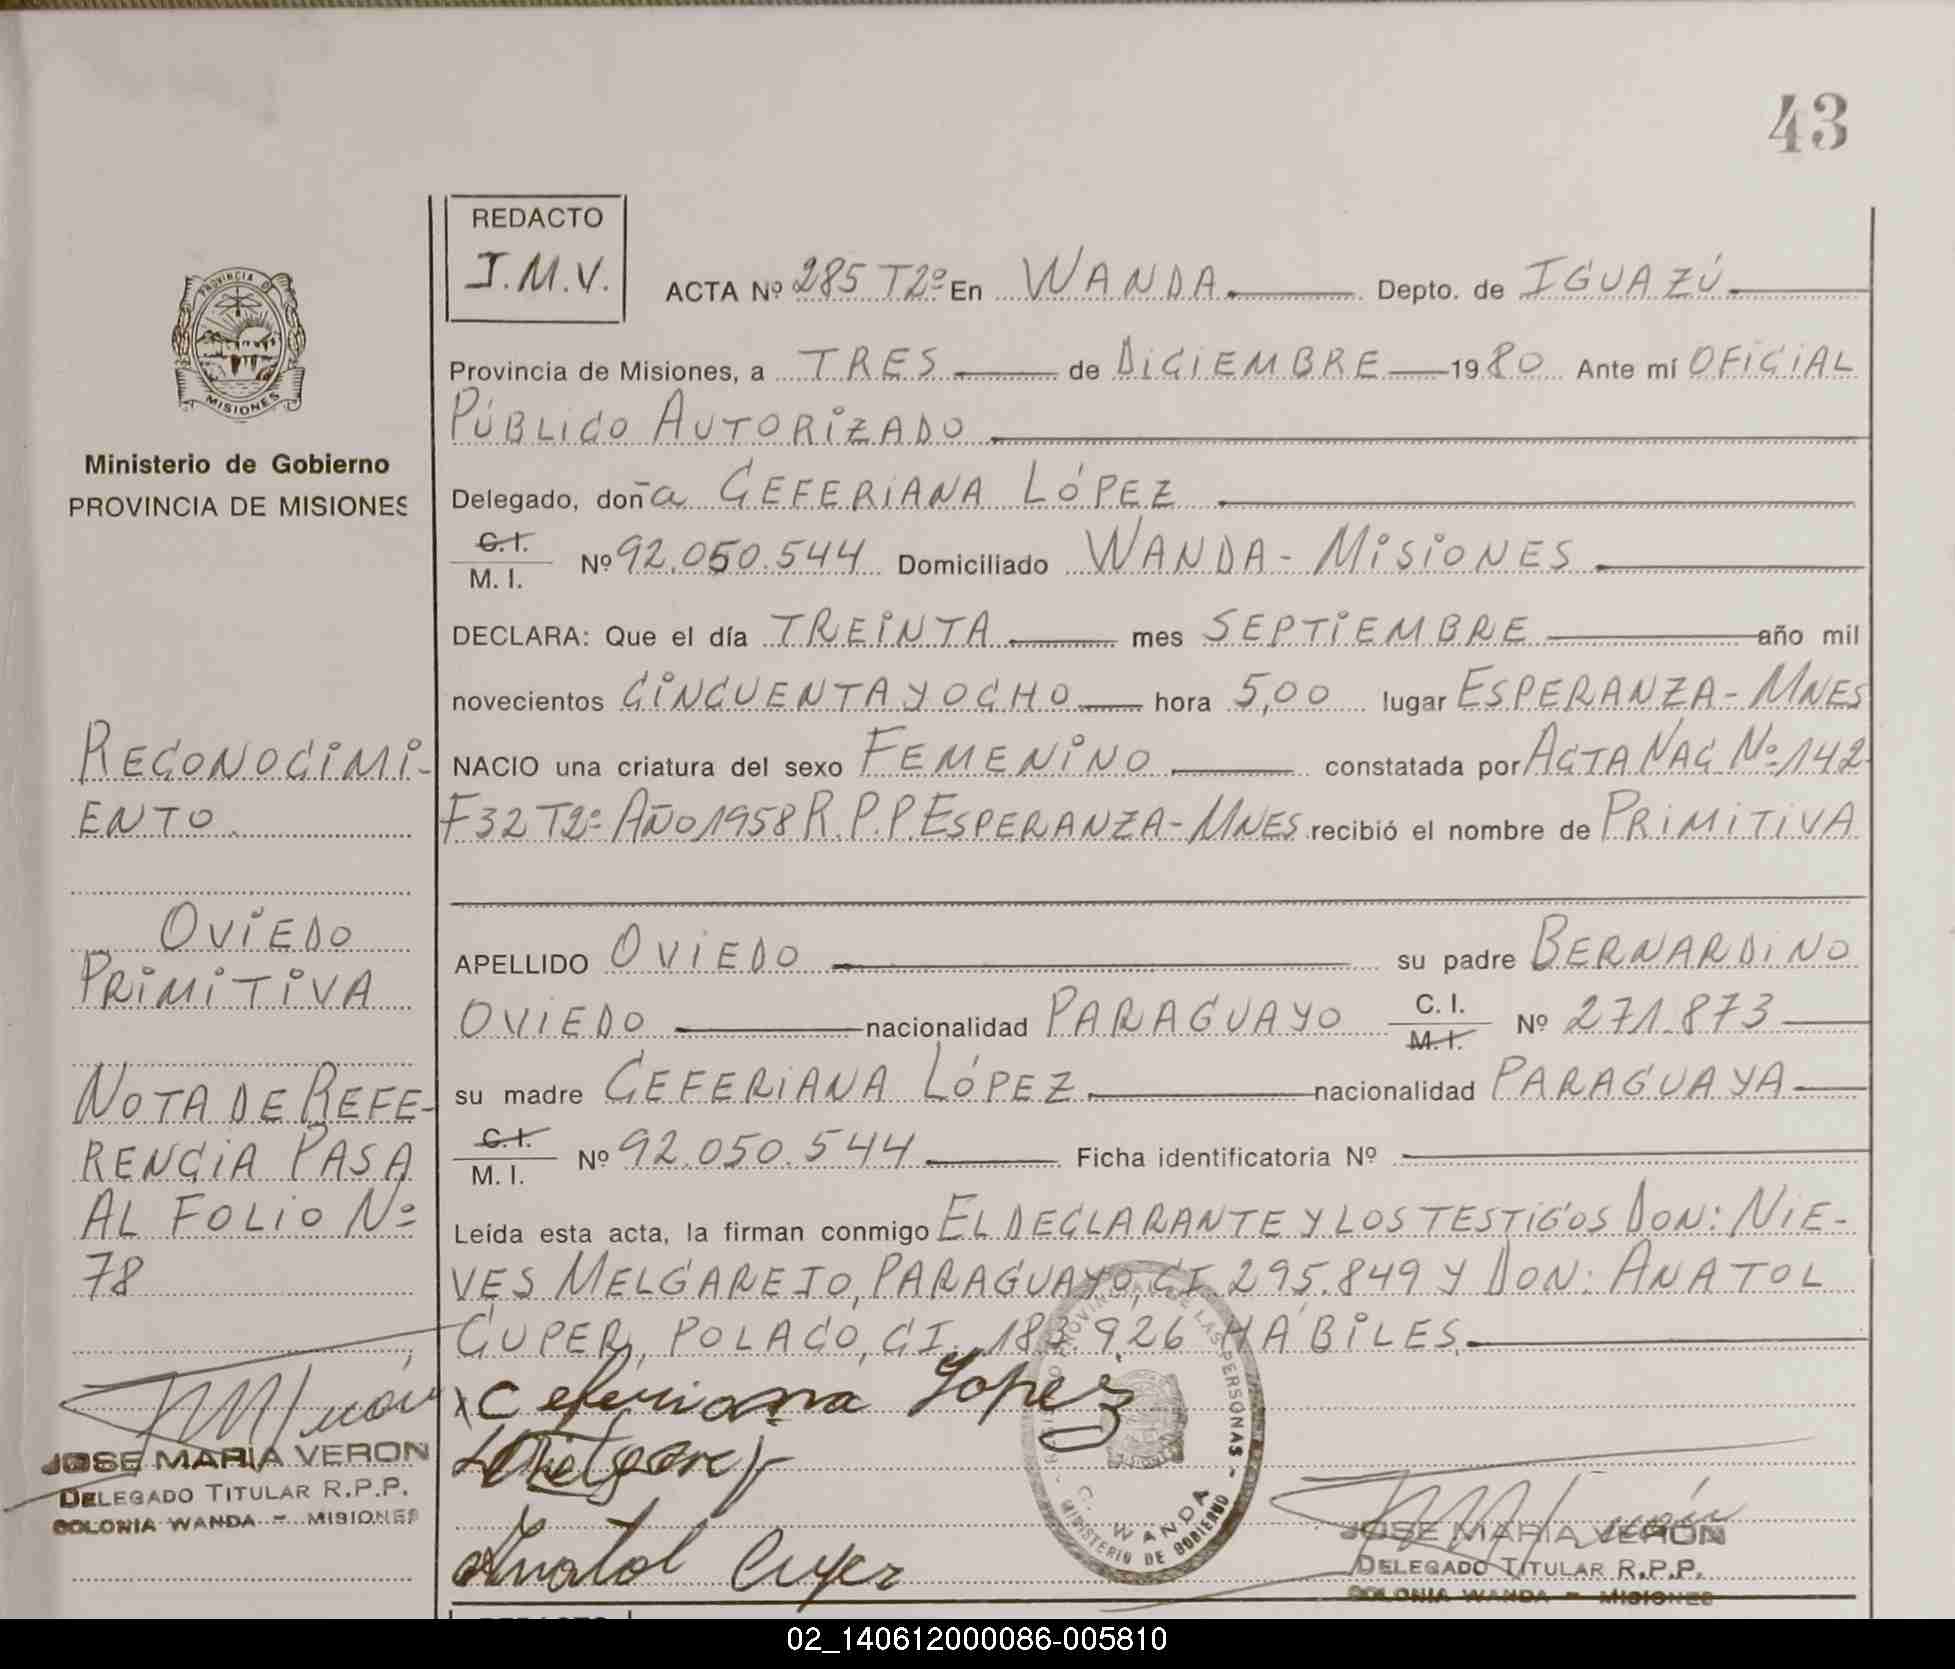 43
REDACTO
J.M.V.
ACTA Nº 285 T2º En WANDA Depto. de IGUAZÚ
Provincia de Misiones, a TRES de DICIEMBRE 1980 Ante mí OFICIAL
PÚBLICO AUTORIZADO
Delegado, doña CEFERIANA LÓPEZ
C.I.
M. I. Nº 92.050.544 Domiciliado WANDA - MISIONES
DECLARA: Que el día TREINTA mes SEPTIEMBRE año mil
novecientos CINCUENTA Y OCHO hora 5,00 lugar ESPERANZA - MNES
NACIO una criatura del sexo FEMENINO constatada por ACTA NAC Nº 142
F32 T2º AÑO 1958 R.P.P. ESPERANZA - MNES recibió el nombre de PRIMITIVA
APELLIDO OVIEDO su padre BERNARDINO
OVIEDO nacionalidad PARAGUAYO C. I.
M.I. Nº 271.873
su madre CEFERIANA LÓPEZ nacionalidad PARAGUAYA
C.I.
M. I. Nº 92.050.544 Ficha identificatoria Nº
Leída esta acta, la firman conmigo EL DECLARANTE Y LOS TESTIGOS DON: NIE-
VES MELGAREJO, PARAGUAYO, CI. 295.849 Y DON: ANATOL
CUPER, POLACO, CI. 183.926 HÁBILES
Ceferiana Lopez
Anatol Cuper
PROVINCIA DE
MISIONES
Ministerio de Gobierno
PROVINCIA DE MISIONES
RECONOCIMI-
ENTO
OVIEDO
PRIMITIVA
NOTA DE REFE-
RENCIA PASA
AL FOLIO Nº
78
JOSE MARIA VERON
DELEGADO TITULAR R.P.P.
COLONIA WANDA - MISIONES
DE LAS PERSONAS
C. WANDA
MINISTERIO DE GOBIERNO
JOSE MARIA VERON
DELEGADO TITULAR R.P.P.
COLONIA WANDA - MISIONES
02_140612000086-005810